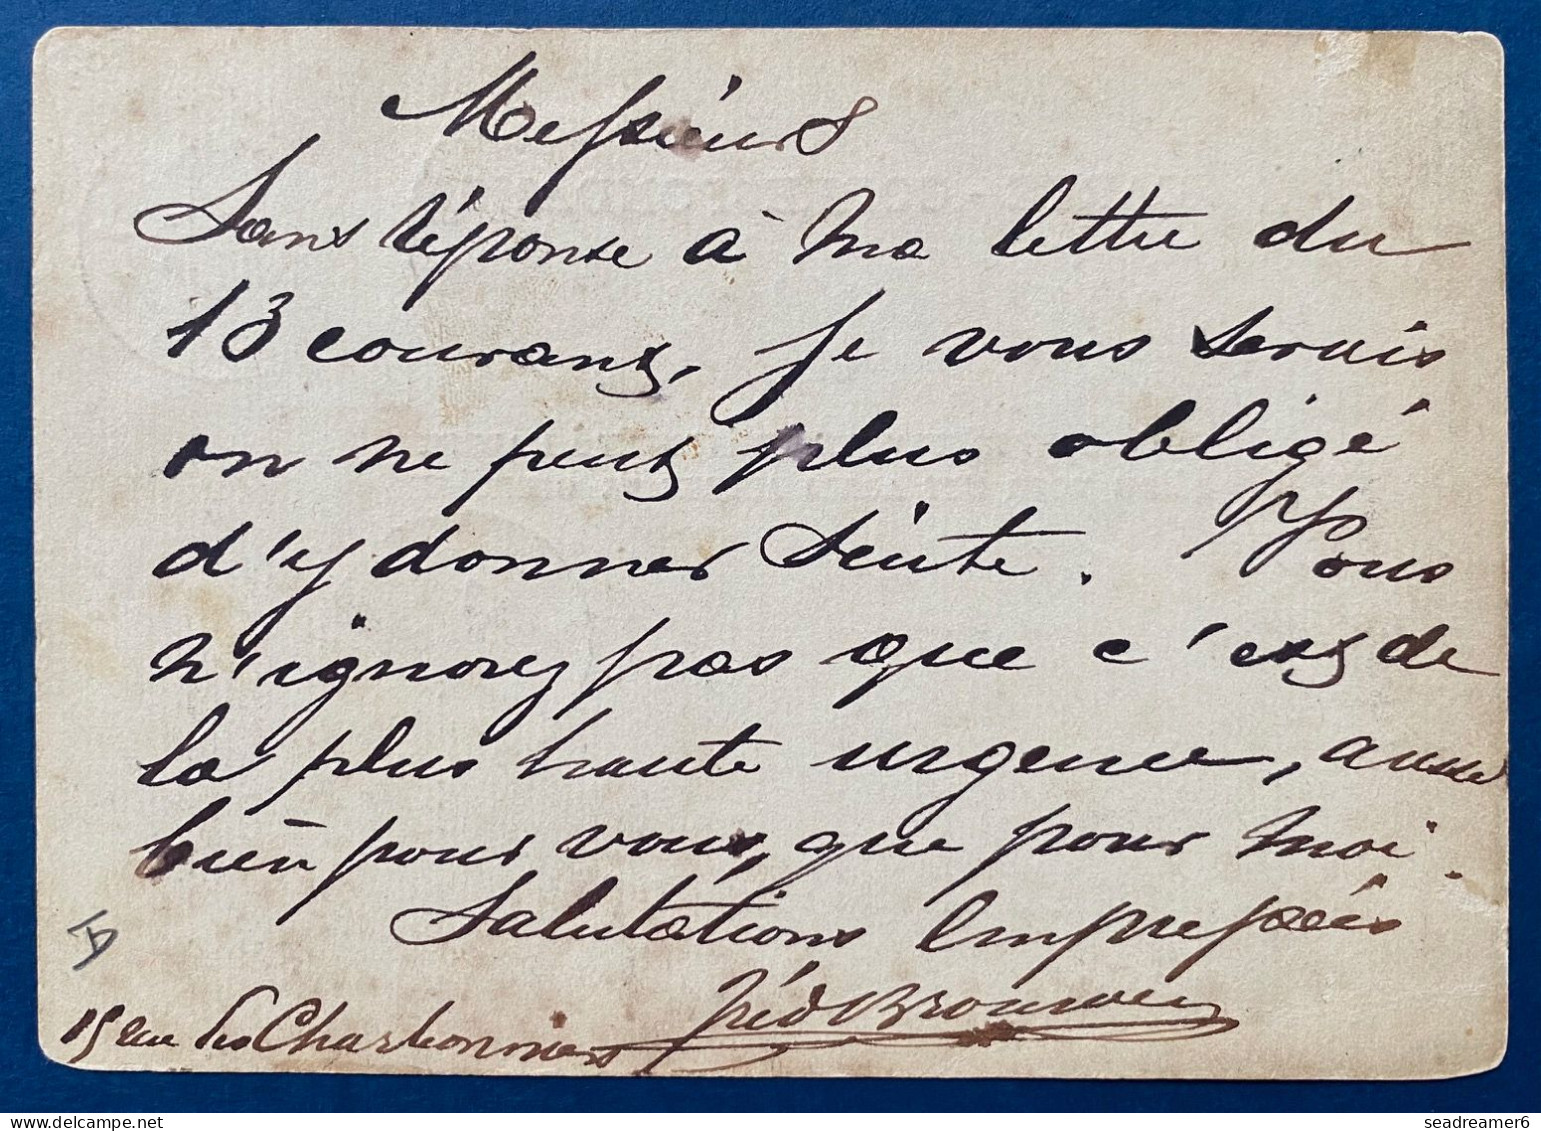 Messieurs
Sans réponse à ma lettre du
13 courant, je vous serais
on ne peut plus obligé
d'y donner suite. Vous
n'ignorez pas que c'est de
la plus haute urgence, aussi
bien pour vous, que pour moi.
Salutations Empressées
Fréd Brouwer
15 rue des Charbonniers
seadreamer6